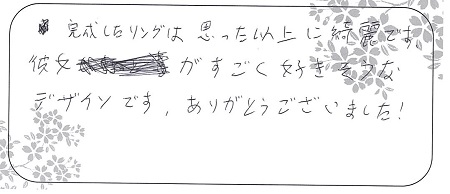 完成したリングは思った以上に綺麗です。
彼女がすごく好きそうな
デザインです，ありがとうございました！